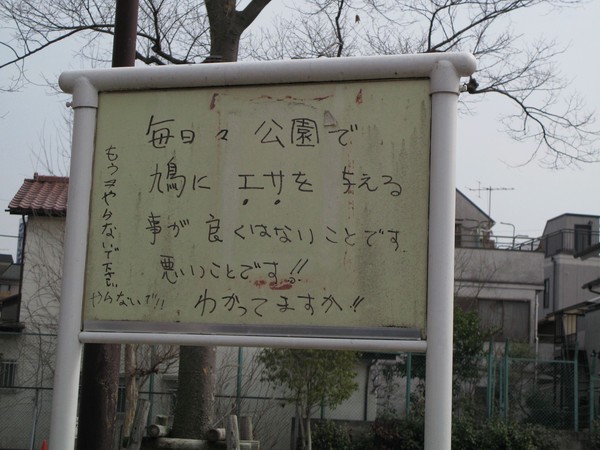 毎日々 公園で
鳩に エサを 与える
事が 良くはないことです.
悪いことです!!
わかってますか!!
やらないで!!